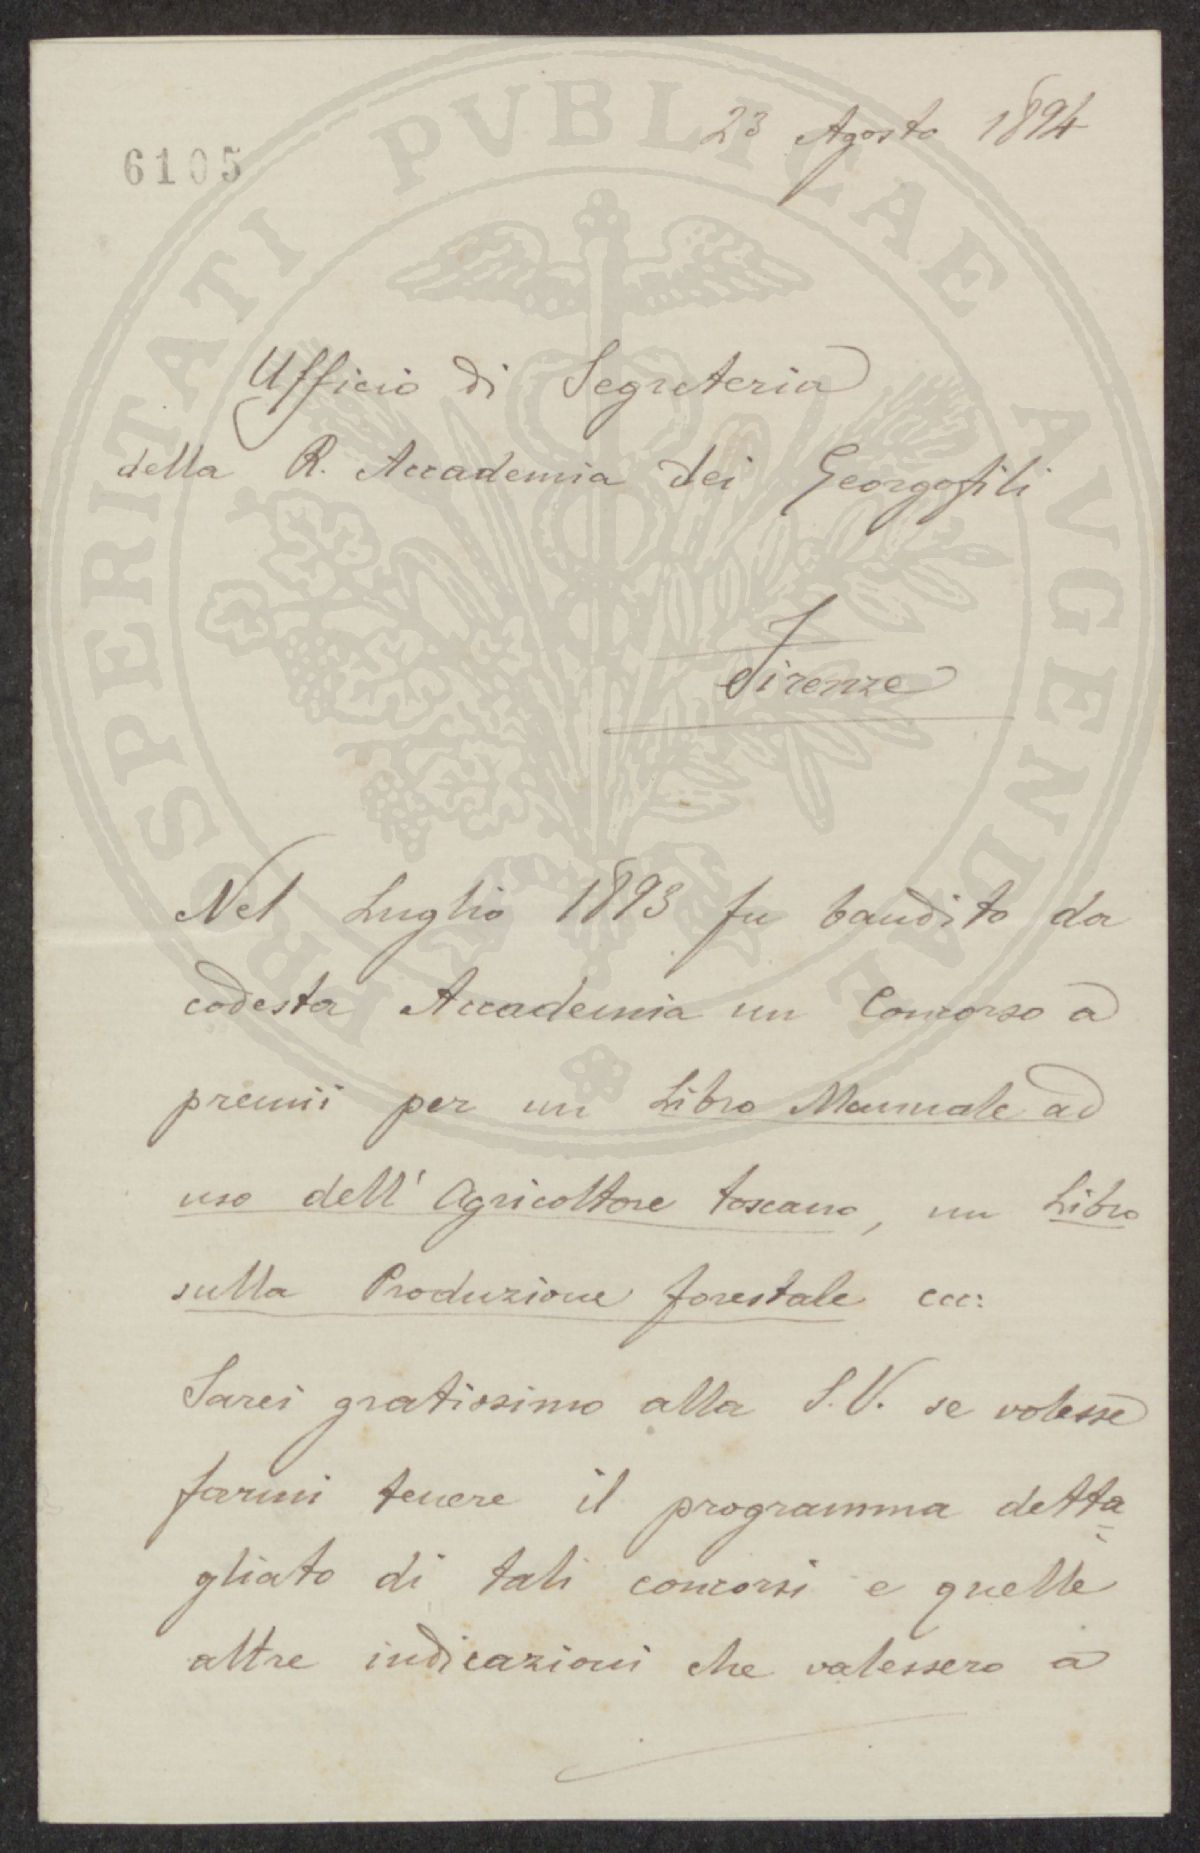 PROSPERITATI PVBLICAE AVGENDAE
6105
23 Agosto 1894
Ufficio di Segreteria
della R. Accademia dei Georgofili
Firenze
Nel Luglio 1893 fu bandito da
codesta Accademia un Concorso a
premii per un Libro Manuale ad
uso dell'Agricoltore toscano, un Libro
sulla Produzione forestale ecc:
Sarei gratissimo alla S. V. se volesse
farmi tenere il programma detta=
gliato di tali concorsi e quelle
altre indicazioni che valessero a